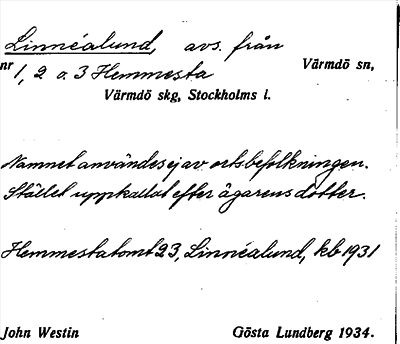 Linnéalund, avs. från
nr 1, 2 o. 3 Hemmesta Värmdö sn,
Värmdö skg, Stockholms l.
Namnet användes ej av ortsbefolkningen.
Stället uppkallat efter ägarens dotter.
Hemmestatomt 23, Linnéalund, kb 1931
John Westin Gösta Lundberg 1934.